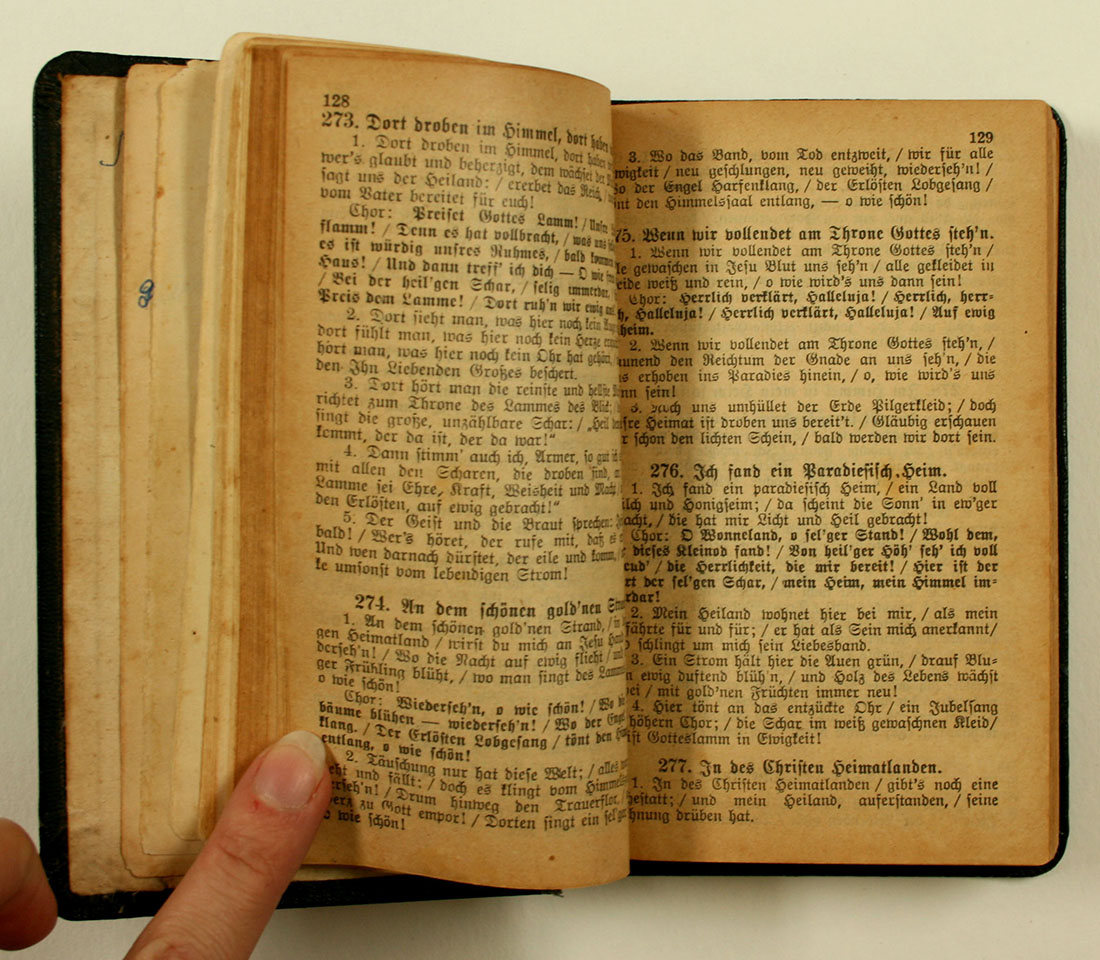 128
273. Dort droben im Himmel, dort haben
1. Dort droben im Himmel, dort haben
wer's glaubt und beherzigt, dem wächset der
sagt uns der Heiland: / ererbet das Reich,
vom Vater bereitet für euch!
Chor: Preiset Gottes Lamm! /
flamm! / Denn es hat vollbracht, / was uns
es ist würdig unsres Ruhmes, / bald kommen
Haus! / Und dann treff' ich dich — O wie
/ Bei der heil'gen Schar, / selig immerdar,
Preis dem Lamme! / Dort ruh'n wir ewig
2. Dort sieht man, was hier noch kein
dort fühlt man, was hier noch kein Herze
hört man, was hier noch kein Ohr hat gehört,
den Ihn Liebenden Großes beschert.
3. Dort hört man die reinste und
richtet zum Throne des Lammes des Blick;
singt die große, unzählbare Schar: / „Heil
kommt, der da ist, der da war!“
4. Dann stimm' auch ich, Armer, so gut
mit allen den Scharen, die droben sind,
Lamme sei Ehre, Kraft, Weisheit und Macht
den Erlösten, auf ewig gebracht!“
5. Der Geist und die Braut sprechen:
bald! / Wer's höret, der rufe mit, daß es
Und wen darnach dürstet, der eile und komm,
ke umsonst vom lebendigen Strom!
274. An dem schönen gold'nen
1. An dem schönen gold'nen Strand, / in
gen Heimatland / wirst du mich an Jesu
derseh'n! / Wo die Nacht auf ewig flieht /
ger Frühling blüht, / wo man singt des
o wie schön!
Chor: Wiederseh'n, o wie schön! / Wo
bäume blühen — wiederseh'n! / Wo der
klang. / Der Erlösten Lobgesang / tönt den
entlang, o wie schön!
2. Täuschung nur hat diese Welt; / alles
und fällt: / doch es klingt vom
/ Drum hinweg den Trauerflor,
zu Gott empor! / Dorten singt ein
wie schön!
129
3. Wo das Band, vom Tod entzweit, / wir für alle
wigkeit / neu geschlungen, neu geweiht, wiederseh'n! /
der Engel Harfenklang, / der Erlösten Lobgesang /
den Himmelssaal entlang, — o wie schön!
75. Wenn wir vollendet am Throne Gottes steh'n.
1. Wenn wir vollendet am Throne Gottes steh'n /
gewaschen in Jesu Blut uns seh'n / alle gekleidet in
eide weiß und rein, / o wie wird's uns dann sein!
Chor: Herrlich verklärt, Halleluja! / Herrlich, herr-
Halleluja! / Herrlich verklärt, Halleluja! / Auf ewig
heim.
2. Wenn wir vollendet am Throne Gottes steh'n, /
unend den Reichtum der Gnade an uns seh'n, / die
erhoben ins Paradies hinein, / o, wie wird's uns
nn sein!
3. Noch uns umhüllet der Erde Pilgerkleid; / doch
Heimat ist droben uns bereit't. / Gläubig erschauen
schon den lichten Schein, / bald werden wir dort sein.
276. Ich fand ein Paradiesisch Heim.
1. Ich fand ein paradiesisch Heim, / ein Land voll
ilch und Honigseim; / da scheint die Sonn' in ew'ger
acht, / die hat mir Licht und Heil gebracht!
Chor: O Wonneland, o sel'ger Stand! / Wohl dem,
dieses Kleinod fand! / Von heil'ger Höh' seh' ich voll
eud' / die Herrlichkeit, die mir bereit! / Hier ist der
rt der sel'gen Schar, / mein Heim, mein Himmel im-
rdar!
2. Mein Heiland wohnet hier bei mir, / als mein
fährte für und für; / er hat als Sein mich anerkannt/
schlingt um mich sein Liebesband.
3. Ein Strom hält hier die Auen grün, / drauf Blu-
n ewig duftend blüh'n, / und Holz des Lebens wächst
bei / mit gold'nen Früchten immer neu!
4. Hier tönt an das entzückte Ohr / ein Jubelsang
höhern Chor; / die Schar im weiß gewaschnen Kleid/
ist Gotteslamm in Ewigkeit!
277. In des Christen Heimatlanden.
1. In des Christen Heimatlanden / gibt's noch eine
estatt; / und mein Heiland, auferstanden, / seine
hnung drüben hat.